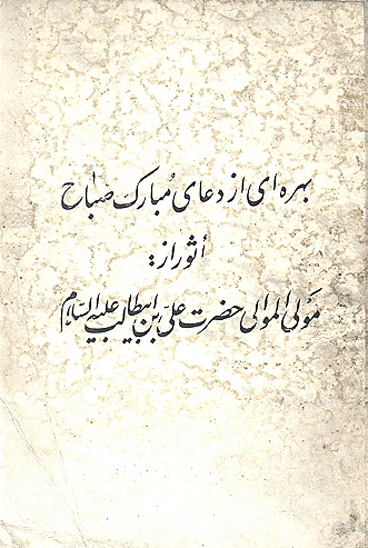 بهره ای از دعای مُبارک صباح
أثور از:
مَولی الموالی حضرت علی بن ابیطالب علیه السّلام